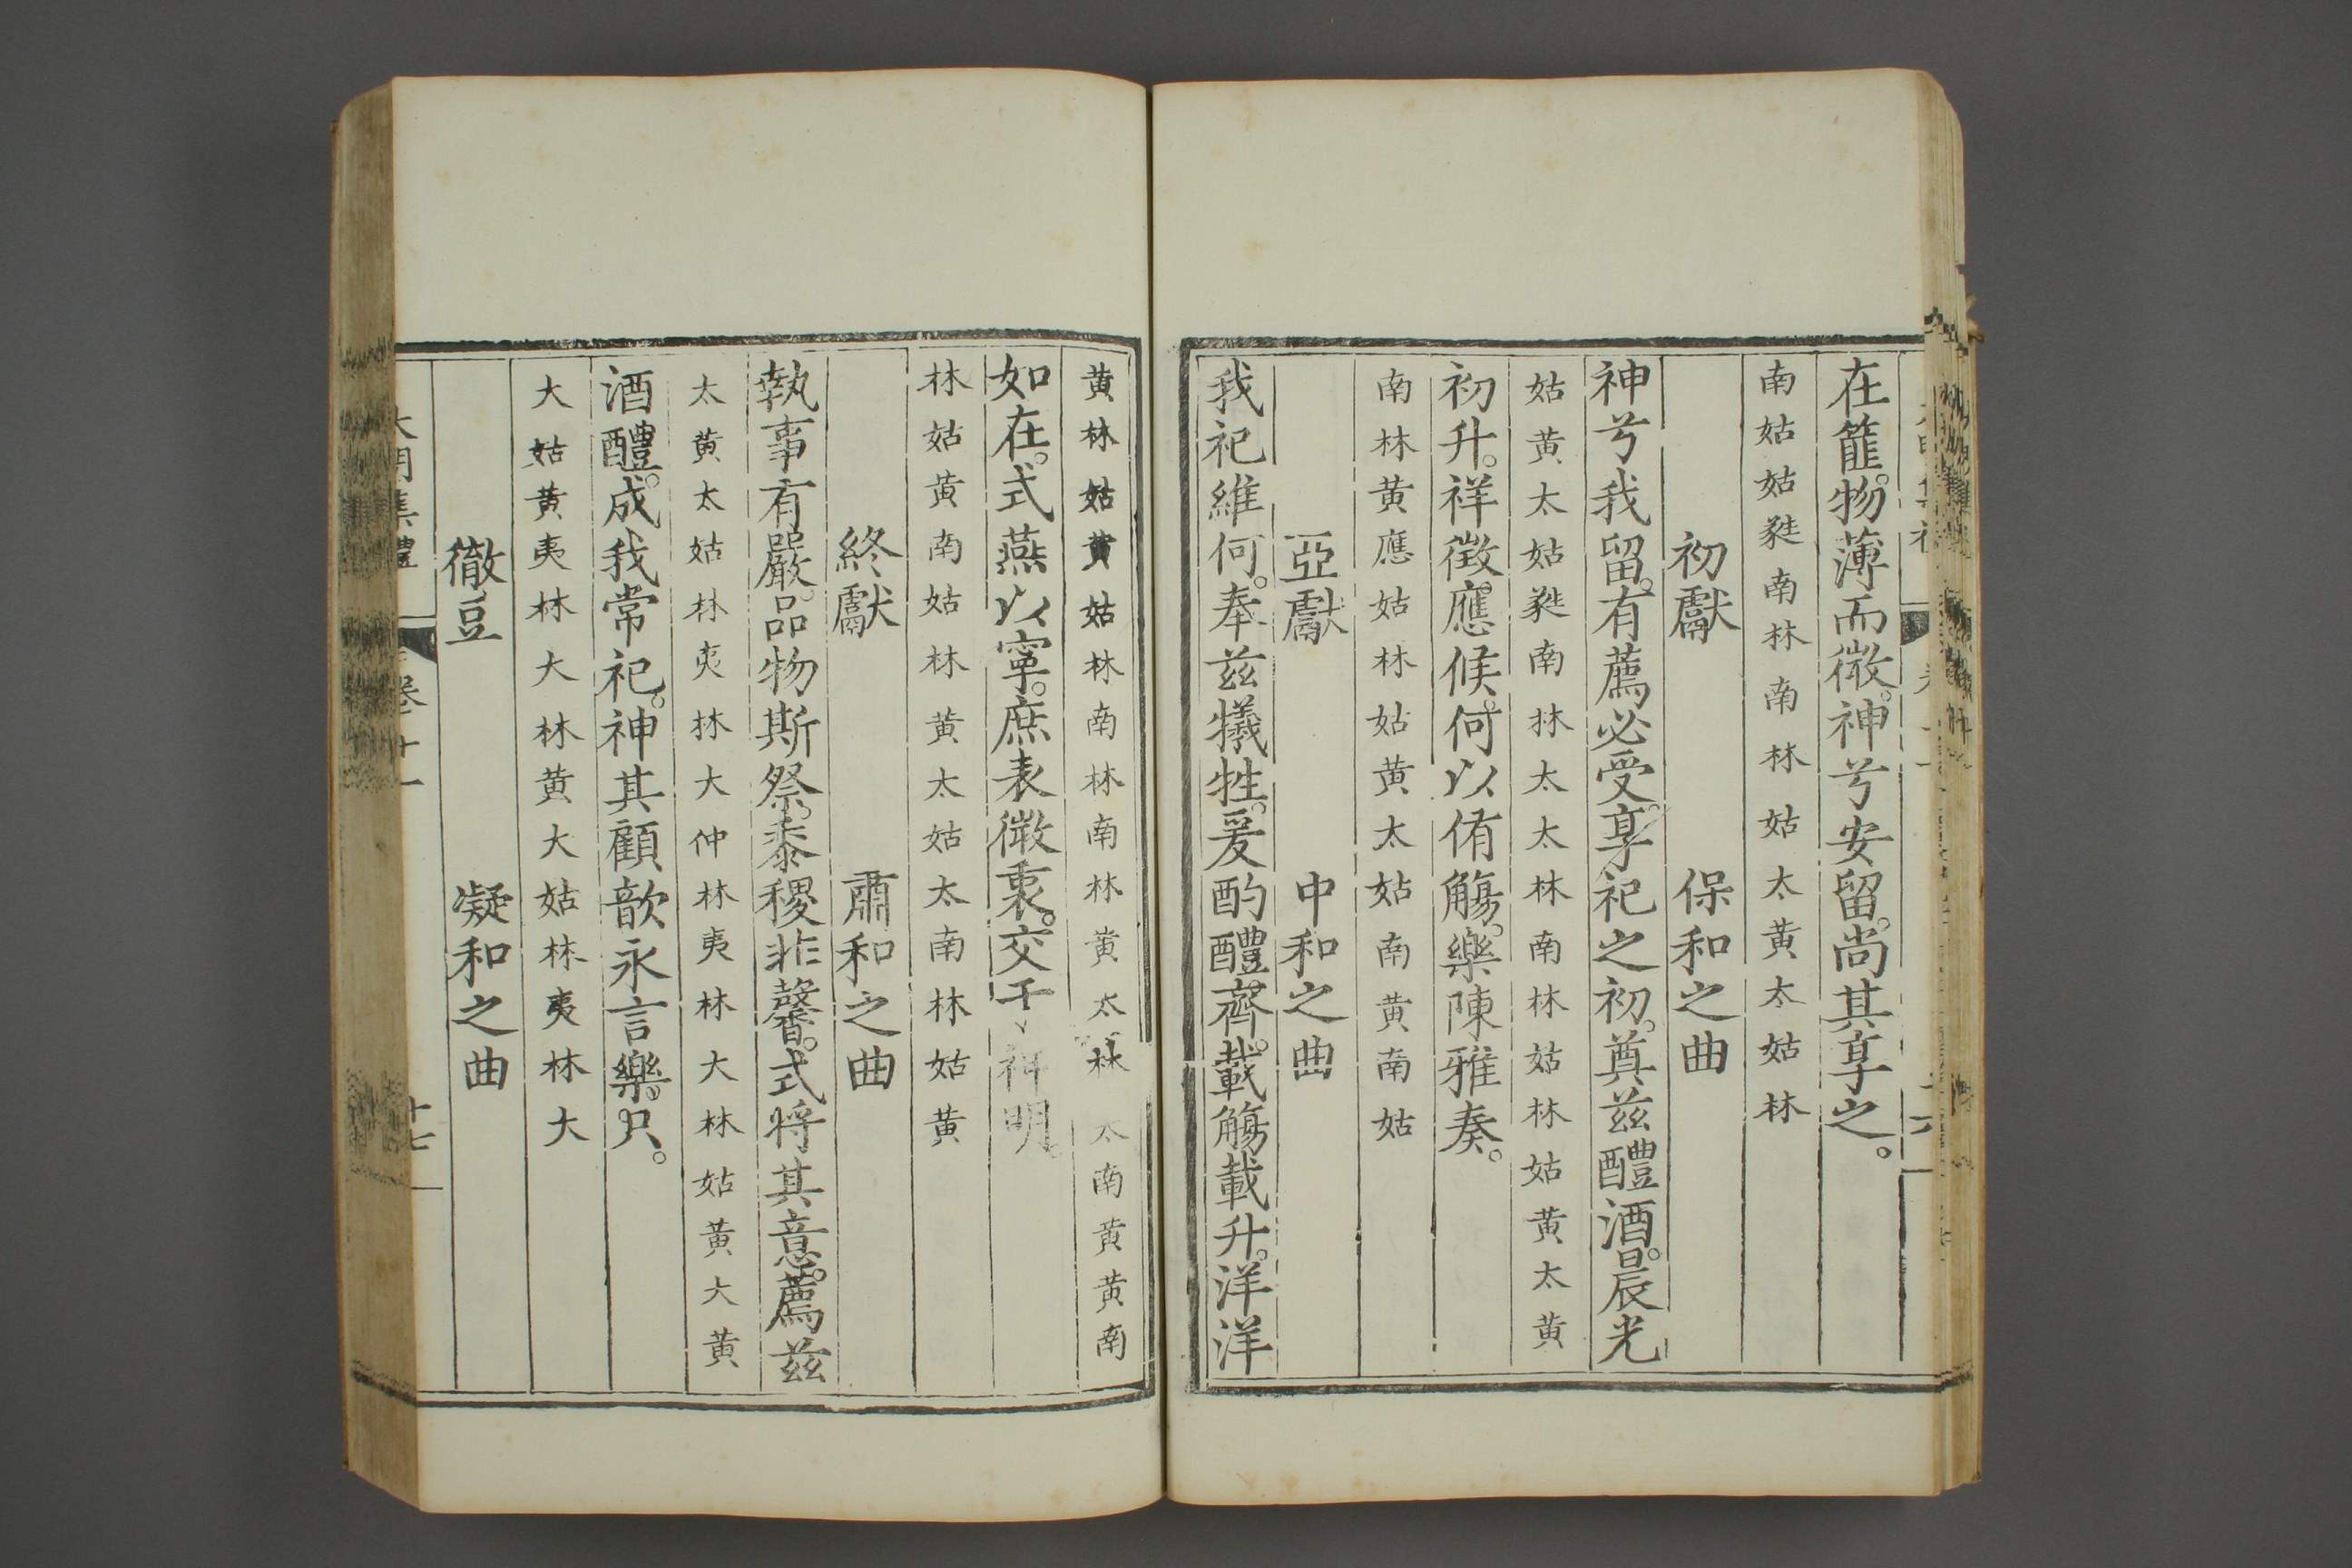 在篚。物薄而微。神兮安留。尚其享之。
南姑姑蕤南林南林姑太黄太姑林
初獻 保和之曲
神兮我留。有薦必受。享祀之初。奠兹醴酒。晨光
姑黄太姑蕤南林太太林南林姑林姑黄太黄
初升。祥徵應候。何以侑觴。樂陳雅奏。
南林黄應姑林姑黄太姑南黄南姑
亞獻 中和之曲
我祀維何。奉兹犧牲。爰酌醴齊。載觴載升。洋洋
黄林姑黄姑林南林南林黄太林太南黄黄南
如在。式燕以寧。庶表微衷。交于神明。
林姑黄南姑林黄太姑太南林姑黄
終獻 肅和之曲
執事有嚴。品物斯祭。黍稷非馨。式将其意。薦兹
太黄太姑林夷林大仲林夷林大林姑黄大黄
酒醴。成我常祀。神其顧歆永言樂。只。
大姑黄夷林大林黄大姑林夷林大
徹豆 凝和之曲
大明集禮 卷十一 十七